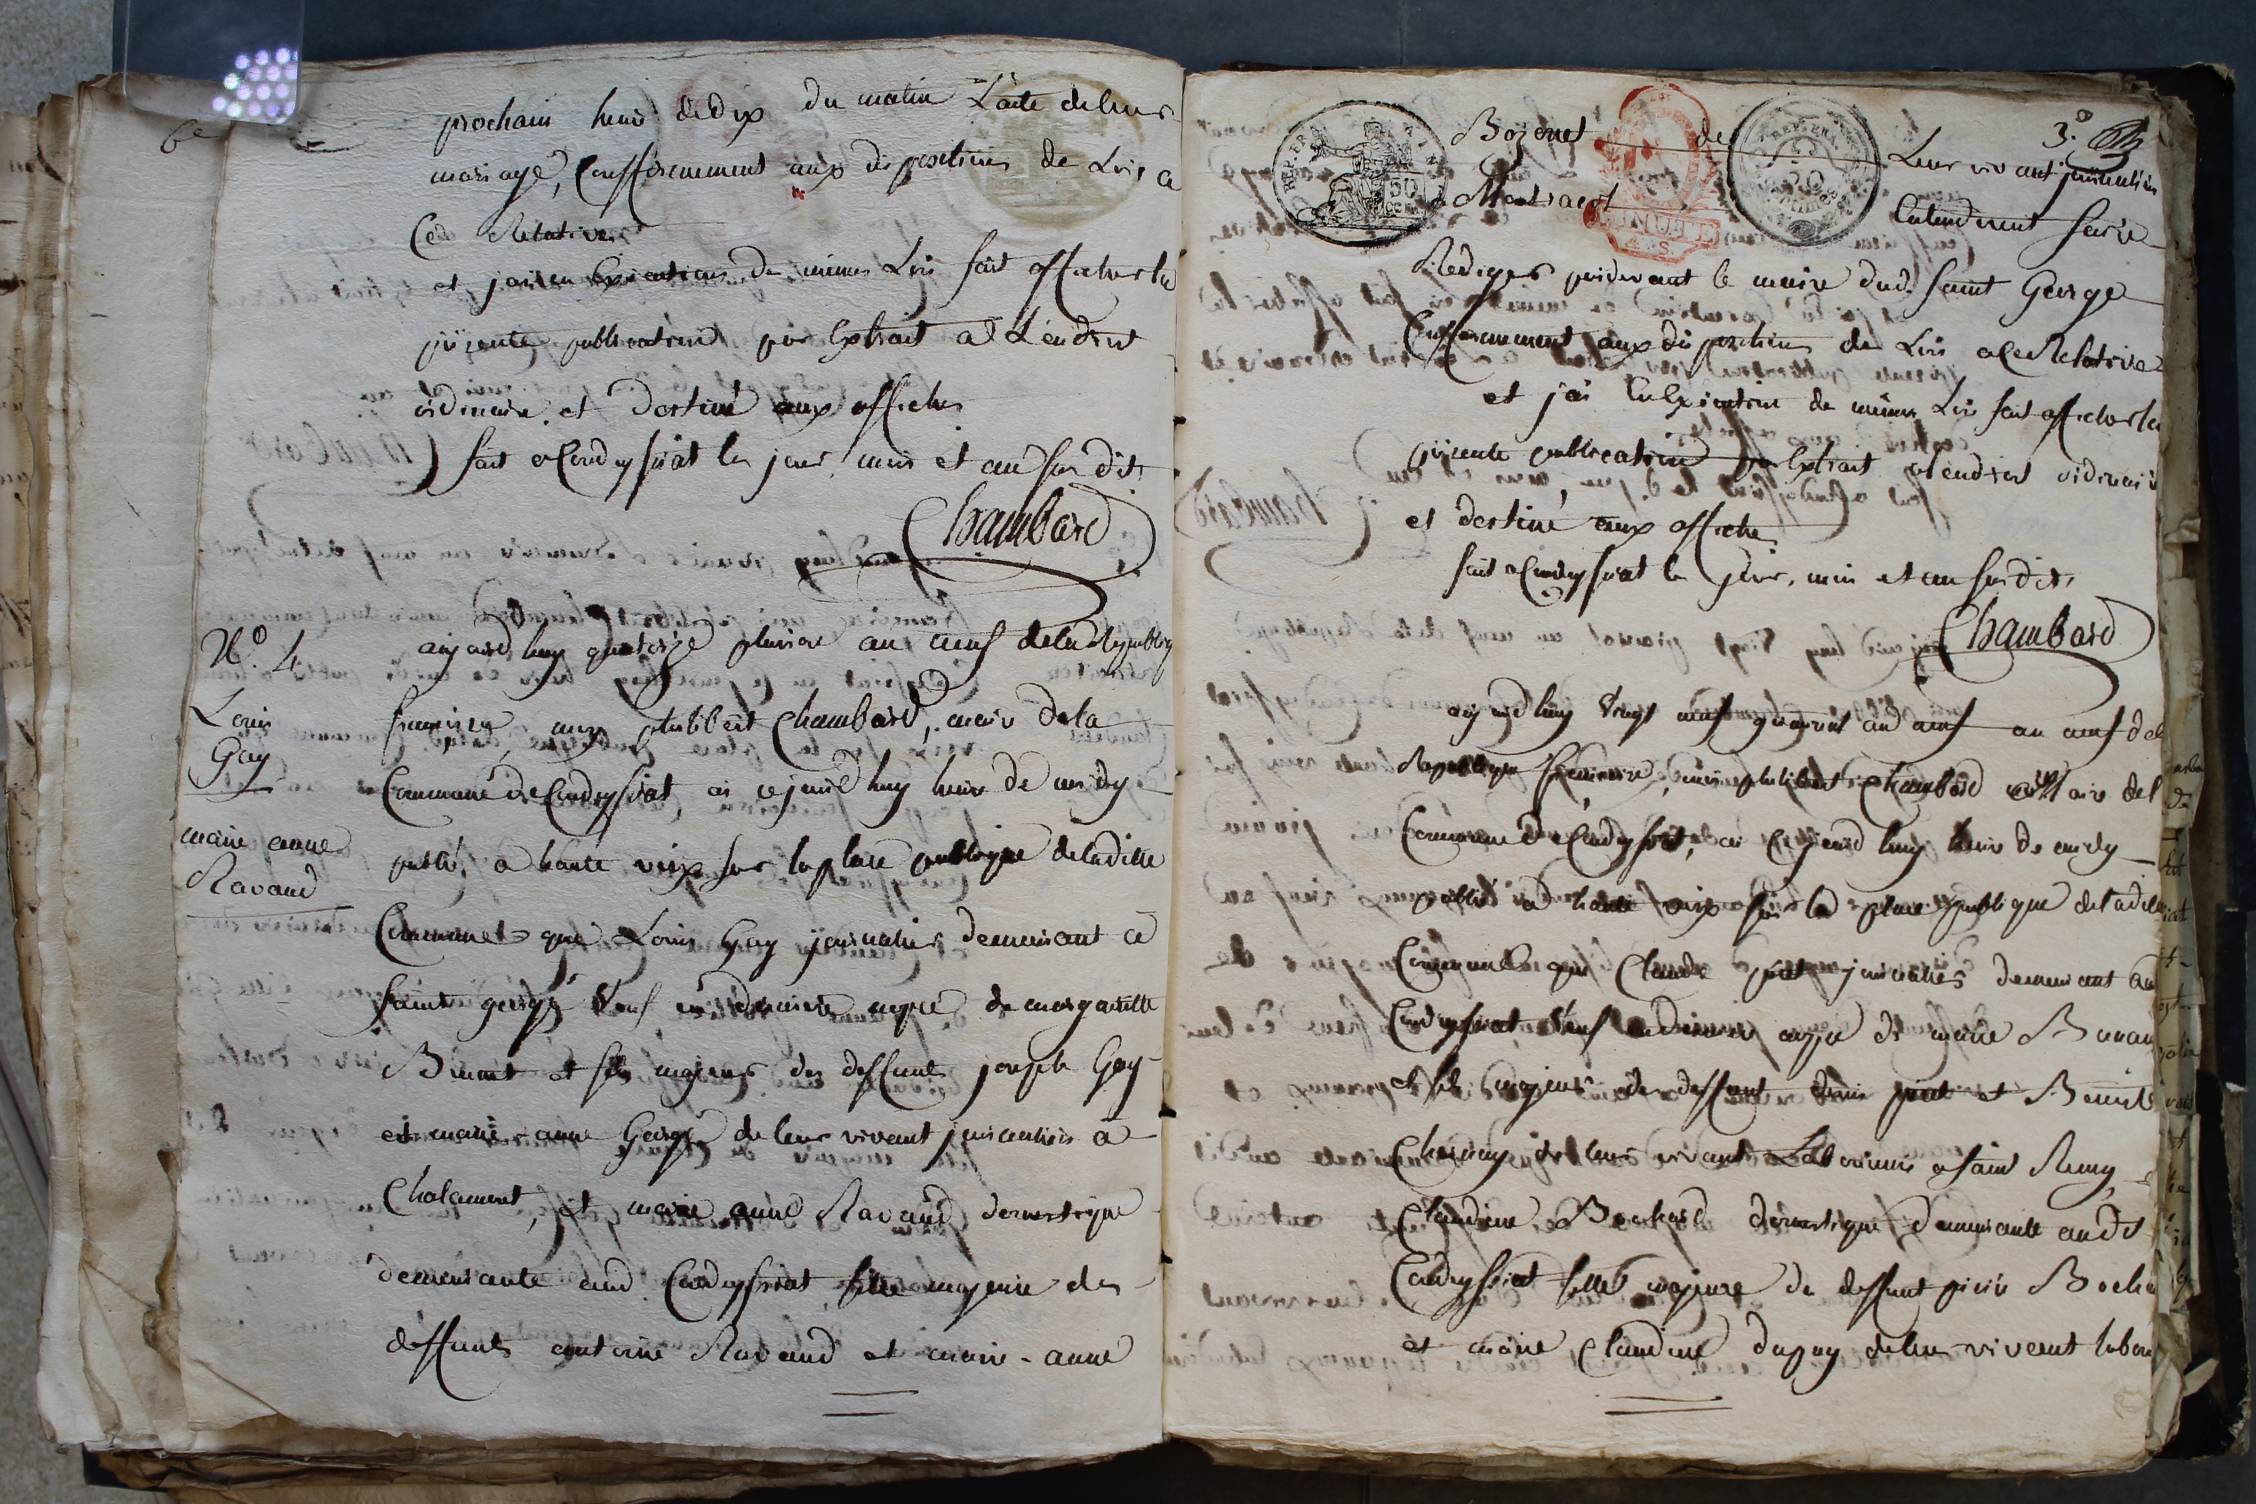 prochain heure de dix du matin L'acte de leur
mariage, Conformement aux dispositions de Lois a
Ces Relatives
et jai en Execution de mêmes Lois fait afficher la
présente publication par Extrait a L'endroit
ordinaire et destiné aux affiches
fait a Condeyssiat les jour, mois et an susdits
Chambard
N.° 4
Louis
Gay
marie anne
Ravaud
aujourd huy quatorze pluviose an neuf de la Republiq
francaise, nous philibert Chambard, maire de la
Commune de Condeyssiat, ai cejourd huy heure de midy
publié a haute voix sur la place publique de laditte
Commune que Louis Gay journalier demeurant a
Saint george Veuf en derniere noces de margueritte
et fils majeur des deffunts joseph Gay
et marie anne George de leur vivant journaliers a
Chalamont, et marie anne Ravaud domestique
demeurante aud. Condeyssiat fille majeure des
deffunts antoine Ravaud et marie-anne
3.e
de Leur vivant journaliers
Entendirent faire
Rediger pardevant le maire dud. Saint George
Conformement aux dispositions de Lois a Ce Relative
et jai En Execution de mêmes Lois fait afficher la
présente publication par Extrait a l'endroit ordinaire
et destiné aux affiches
fait a Condeyssiat les jour, mois et an susdits
Chambard
aujourd huy Vingt neuf an neuf de l
Republique francaise, nous philibert Chambard maire de l
Commune de Condeyssiat, ai Cejourd huy heure de midy
publié a haute voix sur la place publique de ladite
Commune que Claude journalier demeurant au
Condeyssiat Veuf en derniere noces de marie
et fils majeur des deffunt denis et Benoite
de leur vivant Laboureurs a Saint Remy,
Claudine Bochard domestique demeurante audit
Condeyssiat fille majeure de deffunt pierre Bocha
et marie Claudine dupuy de leur vivant labou